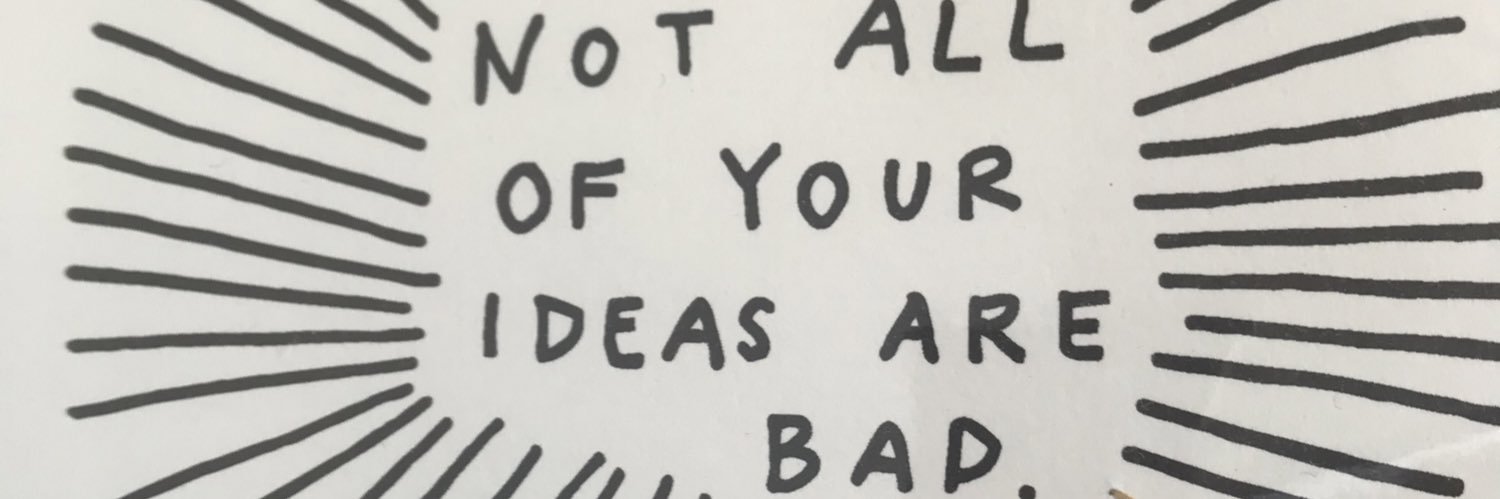 NOT ALL
OF YOUR
IDEAS ARE
BAD.